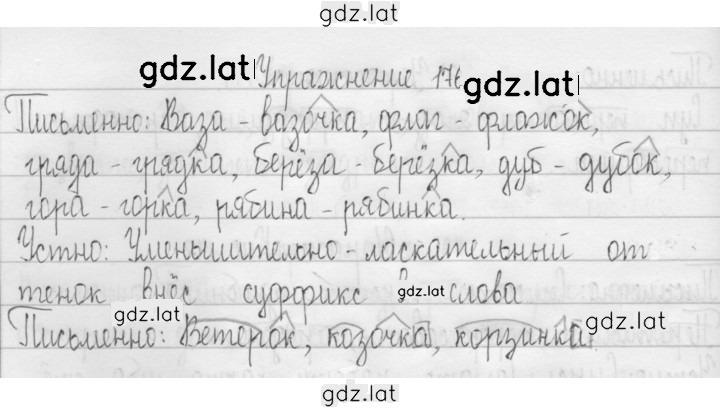 gdz.lat
gdz.lat Упражнение 176 gdz.lat
Письменно: Ваза - вазочка, флаг - флажок,
гряда - грядка, берёза - берёзка, дуб - дубок,
гора - горка, рябина - рябинка.
Устно: Уменьшительно-ласкательный от
тенок внёс суффикс в gdz.lat слова
gdz.lat
Письменно: Ветерок, козочка, корзинка. gdz.lat
gdz.lat